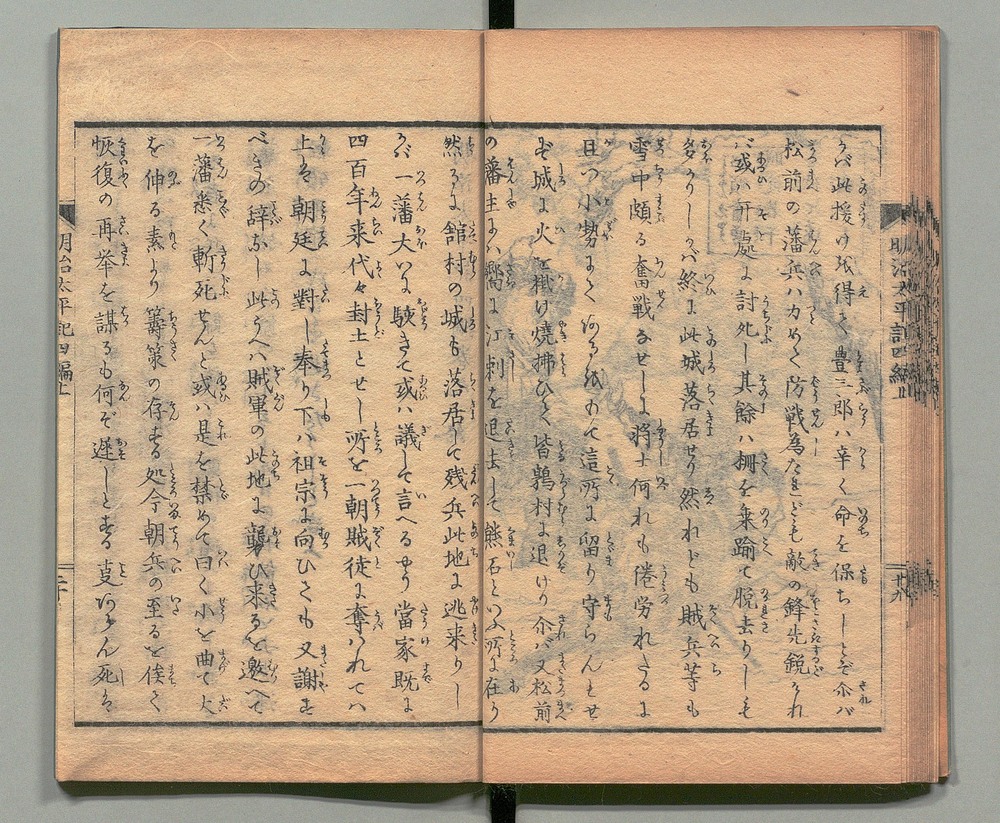 らバ此援けを得て豊三郎ハ辛く命を保ちしとぞ尒バ
松前の藩兵ハ力めて防戦為たれども敵の鋒先鋭どけれ
バ或ハ其處に討死し其餘ハ柵を乗踰て脱去りしも
多かりしかバ終に此城落居せり然れども賊兵等も
雪中頗る奮戦なせしに将士何れも倦労れたるに
且つ小勢にて何を以て這所に留り守らんとせ
ず城に火を掛け焼拂ひて皆鶉村に退けり尒バ又松前
の藩主にハ嚮に江刺を退去して熊石といふ所に在り
然るに舘村の城も落居して残兵此地に逃来りし
かバ一藩大いに駭きて或ハ議して言へるやう當家既に
四百年来代々封土とせし所を一朝賊徒に奪ハれてハ
上は朝廷に對し奉り下ハ祖宗に向ひても又謝す
べきの辞なし此うへハ賊軍の此地に襲ひ来るを邀へて
一藩悉く斬死せんと或ハ是を禁めて曰く小を曲て大
を伸る素より籌策の存する処今朝兵の至るを俟て
恢復の再挙を謀るも何ぞ遅しとする支あらん死は
明治太平記四編上
明治太平記四編上